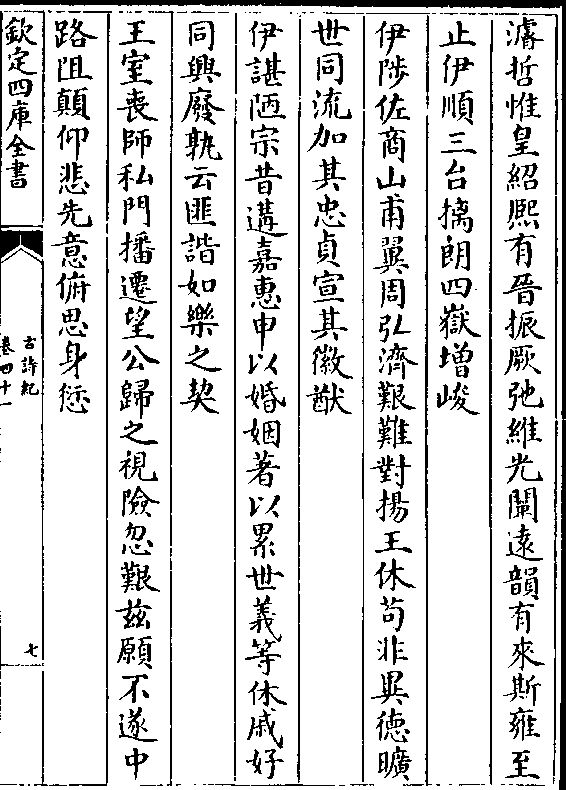 濬哲惟皇紹熙有晉振厥弛維光闡遠韻有來斯雍至
止伊順三台摛朗四嶽增峻
伊陟佐商山甫翼周弘濟艱難對揚王休苟非異德曠
世同流加其忠貞宣其徽猷
伊諶陋宗昔遘嘉惠申以婚姻著以累世義等休戚好
同興廢孰云匪諧如樂之契
王室喪師私門播遷望公歸之視險忽艱茲願不遂中
路阻顛仰悲先意俯思身愆
欽定四庫全書
古詩紀
卷四十一
七